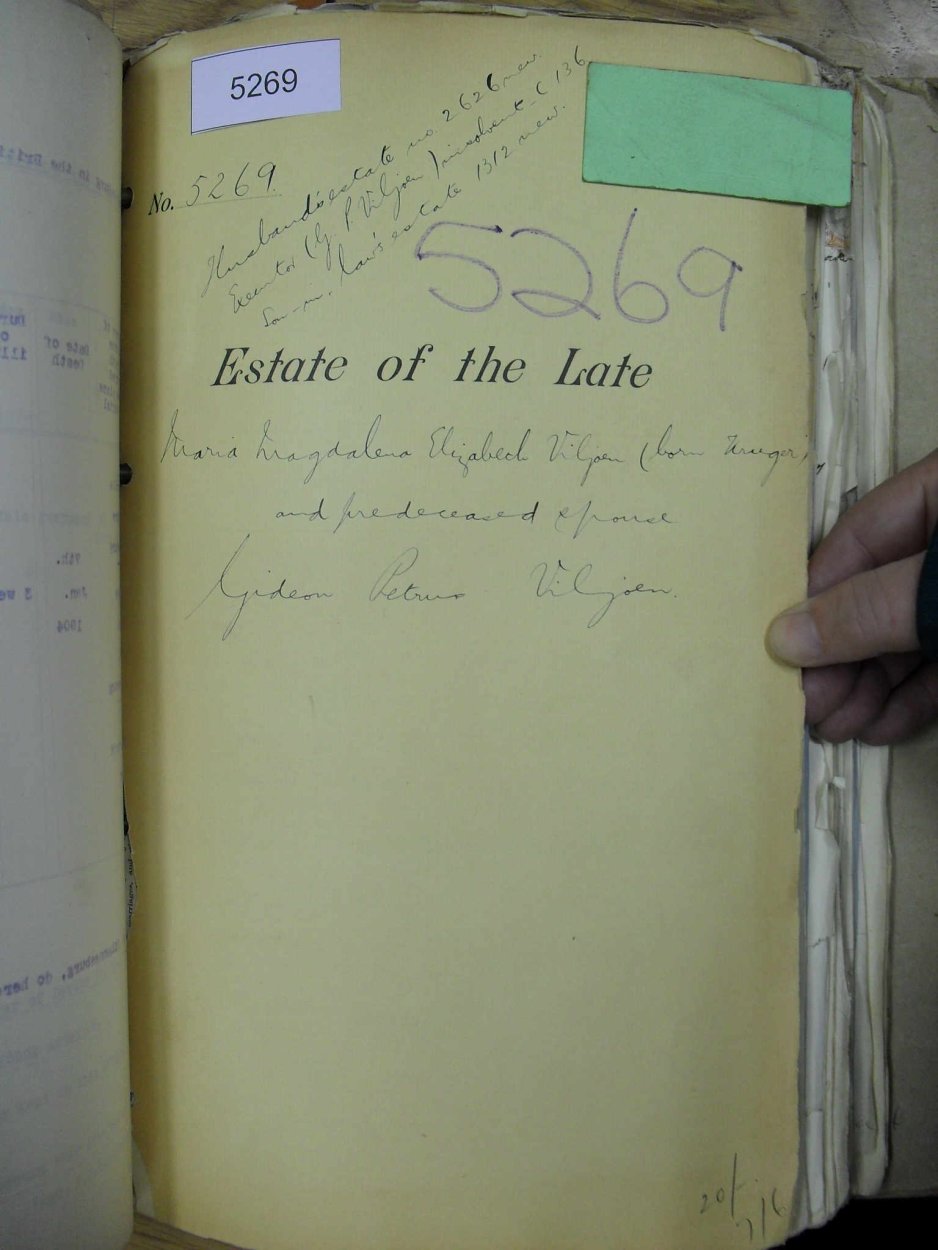 5269
No. 5269
Husband's estate no. 2626 new.
Executor (G. P. Viljoen) insolvent - C 136
Son-in-law's estate 1312 new.
5269
Estate of the Late
Maria Magdalena Elizabeth Viljoen (born Kruger)
and predeceased spouse
Gideon Petrus Viljoen.
20/-
7/6